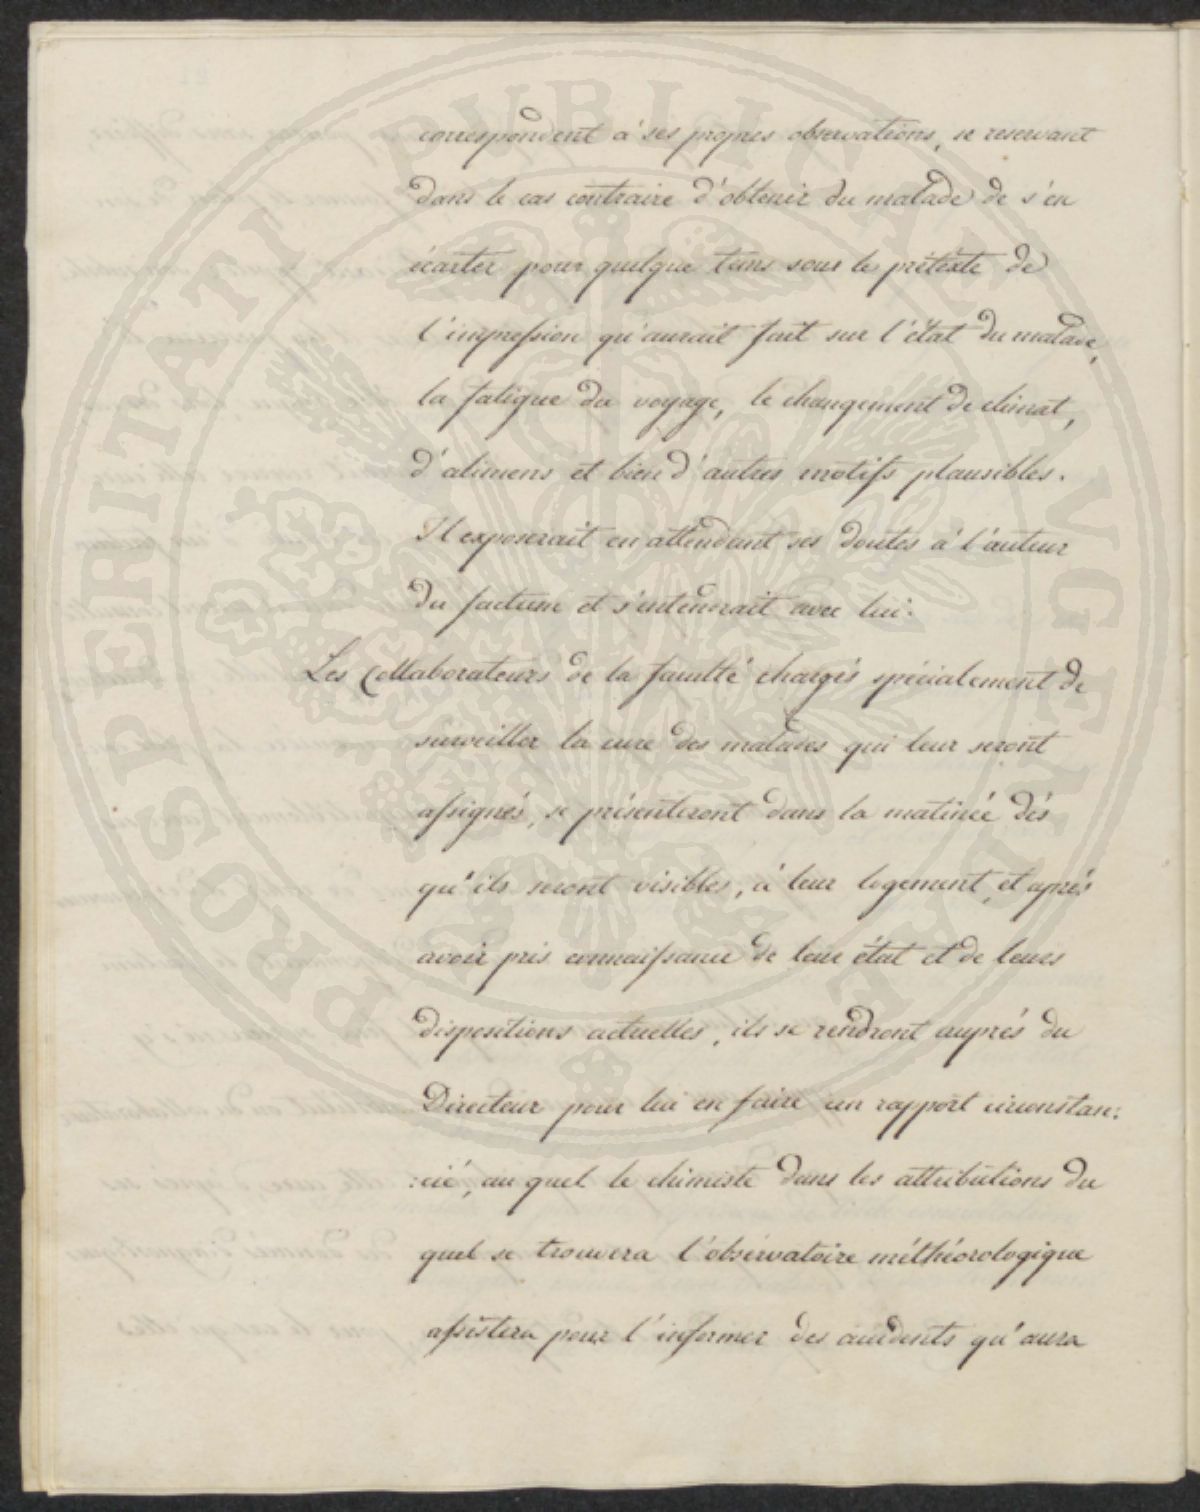 correspondent à ses propres observations, se reservant
dans le cas contraire d'obtenir du malade de s'en
écarter pour quelque tems sous le prétexte de
l'impression qu'aurait fait sur l'état du malade,
la fatigue du voyage, le changement de climat,
d'alimens et bien d'autres motifs plausibles.
Il exposerait en attendant ses doutes à l'auteur
du factum et s'entennrait avec lui.
Les Collaborateurs de la faculté chargés spécialement de
surveiller la cure des malades qui leur seront
assignés, se présenteront dans la matinée dès
qu'ils seront visibles, à leur logement, et après
avoir pris connaissance de leur état et de leurs
dispositions actuelles, ils se rendront auprès du
Directeur pour lui en faire un rapport circonstan:
:cié, au quel le chimiste dans les attributions du
quel se trouvera l'observatoire méthéorologique
assistera pour l'informer des accidents qu'aura
PROSPERITATI PUBLICAE AUGENDAE